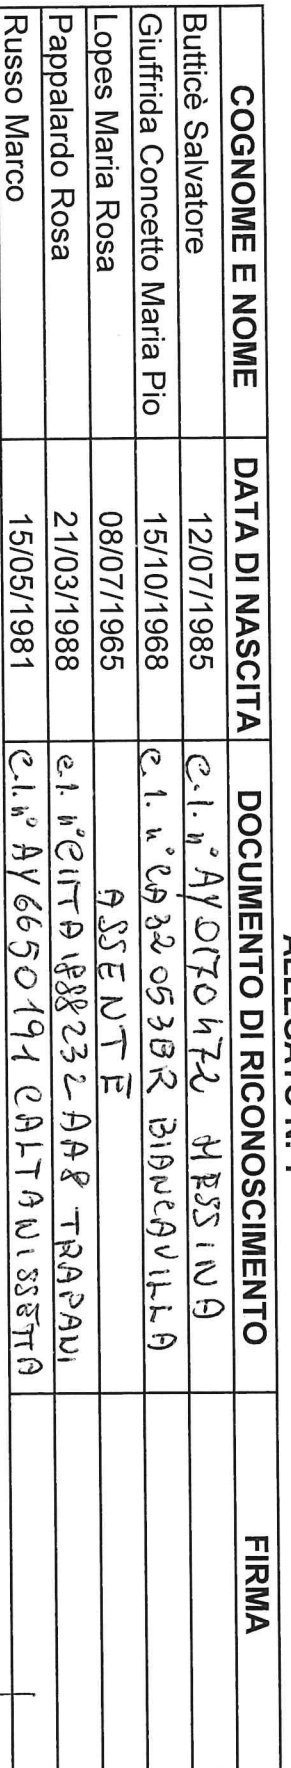 COGNOME E NOME DATA DI NASCITA DOCUMENTO DI RICONOSCIMENTO FIRMA
Butticè Salvatore 12/07/1985 C.I. n° AY0170472 MESSINA
Giuffrida Concetto Maria Pio 15/10/1968 C.I. n° CA32053BR BIANCAVILLA
Lopes Maria Rosa 08/07/1965 ASSENTE
Pappalardo Rosa 21/03/1988 C.I. n° TRAPANI
Russo Marco 15/05/1981 C.I. n° AY6650191 CALTANISSETTA